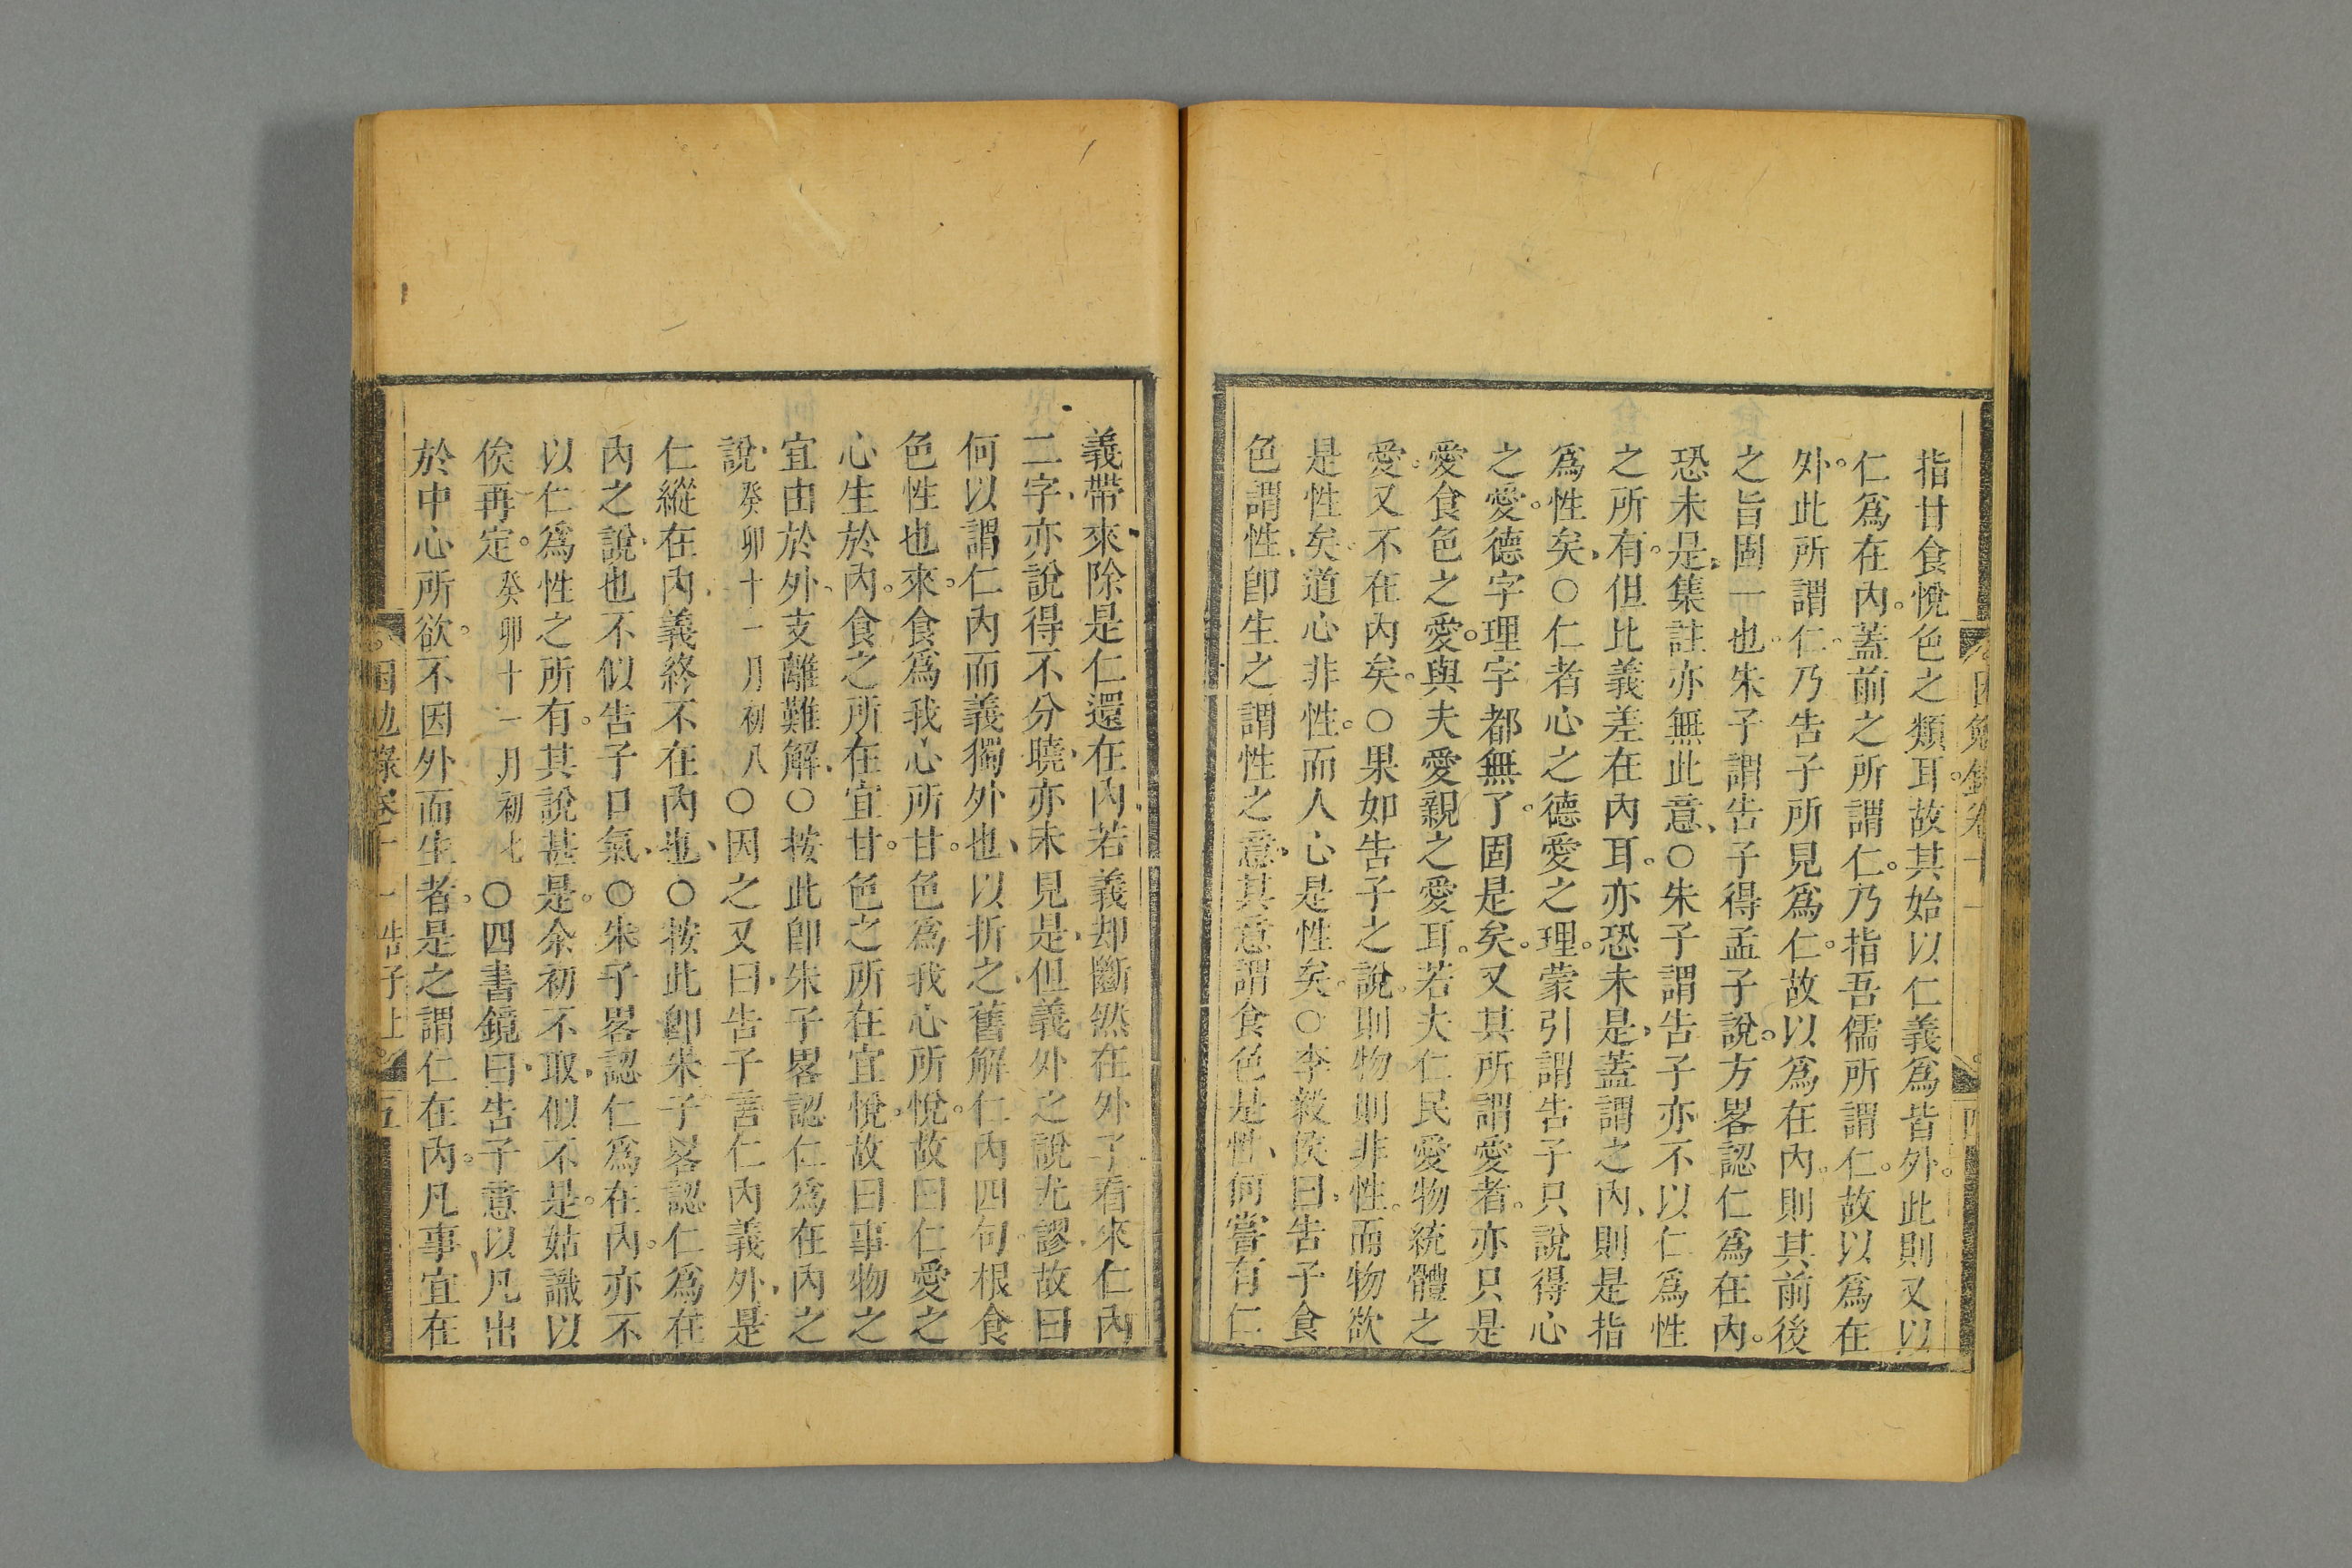 指甘食悅色之類耳。故其始以仁義爲皆外。此則又以
仁爲在內。蓋前之所謂仁。乃指吾儒所謂仁。故以爲在
外。此所謂仁。乃告子所見爲仁。故以爲在內。則其前後
之旨固一也。朱子謂告子得孟子說。方畧認仁爲在內。
恐未是、集註亦無此意、○朱子謂告子亦不以仁爲性
之所有。但比義差在內耳。亦恐未是、蓋謂之內、則是指
爲性矣、○仁者心之德愛之理。蒙引謂告子只說得心
之愛。德字理字都無了。固是矣。又其所謂愛者。亦只是
愛食色之愛。與夫愛親之愛耳。若夫仁民愛物統體之
愛。又不在內矣。○果如告子之說。則物則非性。而物欲
是性矣。道心非性。而人心是性矣。○李毅侯曰、告子食
色謂性、卽生之謂性之意、其意謂食色是性、何嘗有仁
義帶來除是仁還在內若義却斷然在外了看來仁內
二字、亦說得不分曉、亦未見是、但義外之說尤謬、故曰
何以謂仁內而義獨外也、以折之、舊解仁內四句、根食
色性也來。食爲我心所甘。色爲我心所悅。故曰仁愛之
心生於內。食之所在宜甘。色之所在宜悅、故曰事物之
宜由於外、支離難解、○按此卽朱子畧認仁爲在內之
說、癸卯十一月初八○因之又曰、告子言仁內義外、是
仁縱在內、義終不在內也、○按此卽朱子畧認仁爲在
內之說、也不似告子口氣、○朱子畧認仁爲在內。亦不
以仁爲性之所有。其說甚是。余初不取、似不是。姑識以
俟再定。癸卯十一月初七○四書鏡曰、告子意以凡出
於中心所欲。不因外而生者。是之謂仁在內。凡事宜在
困勉錄卷十一 告子上 五